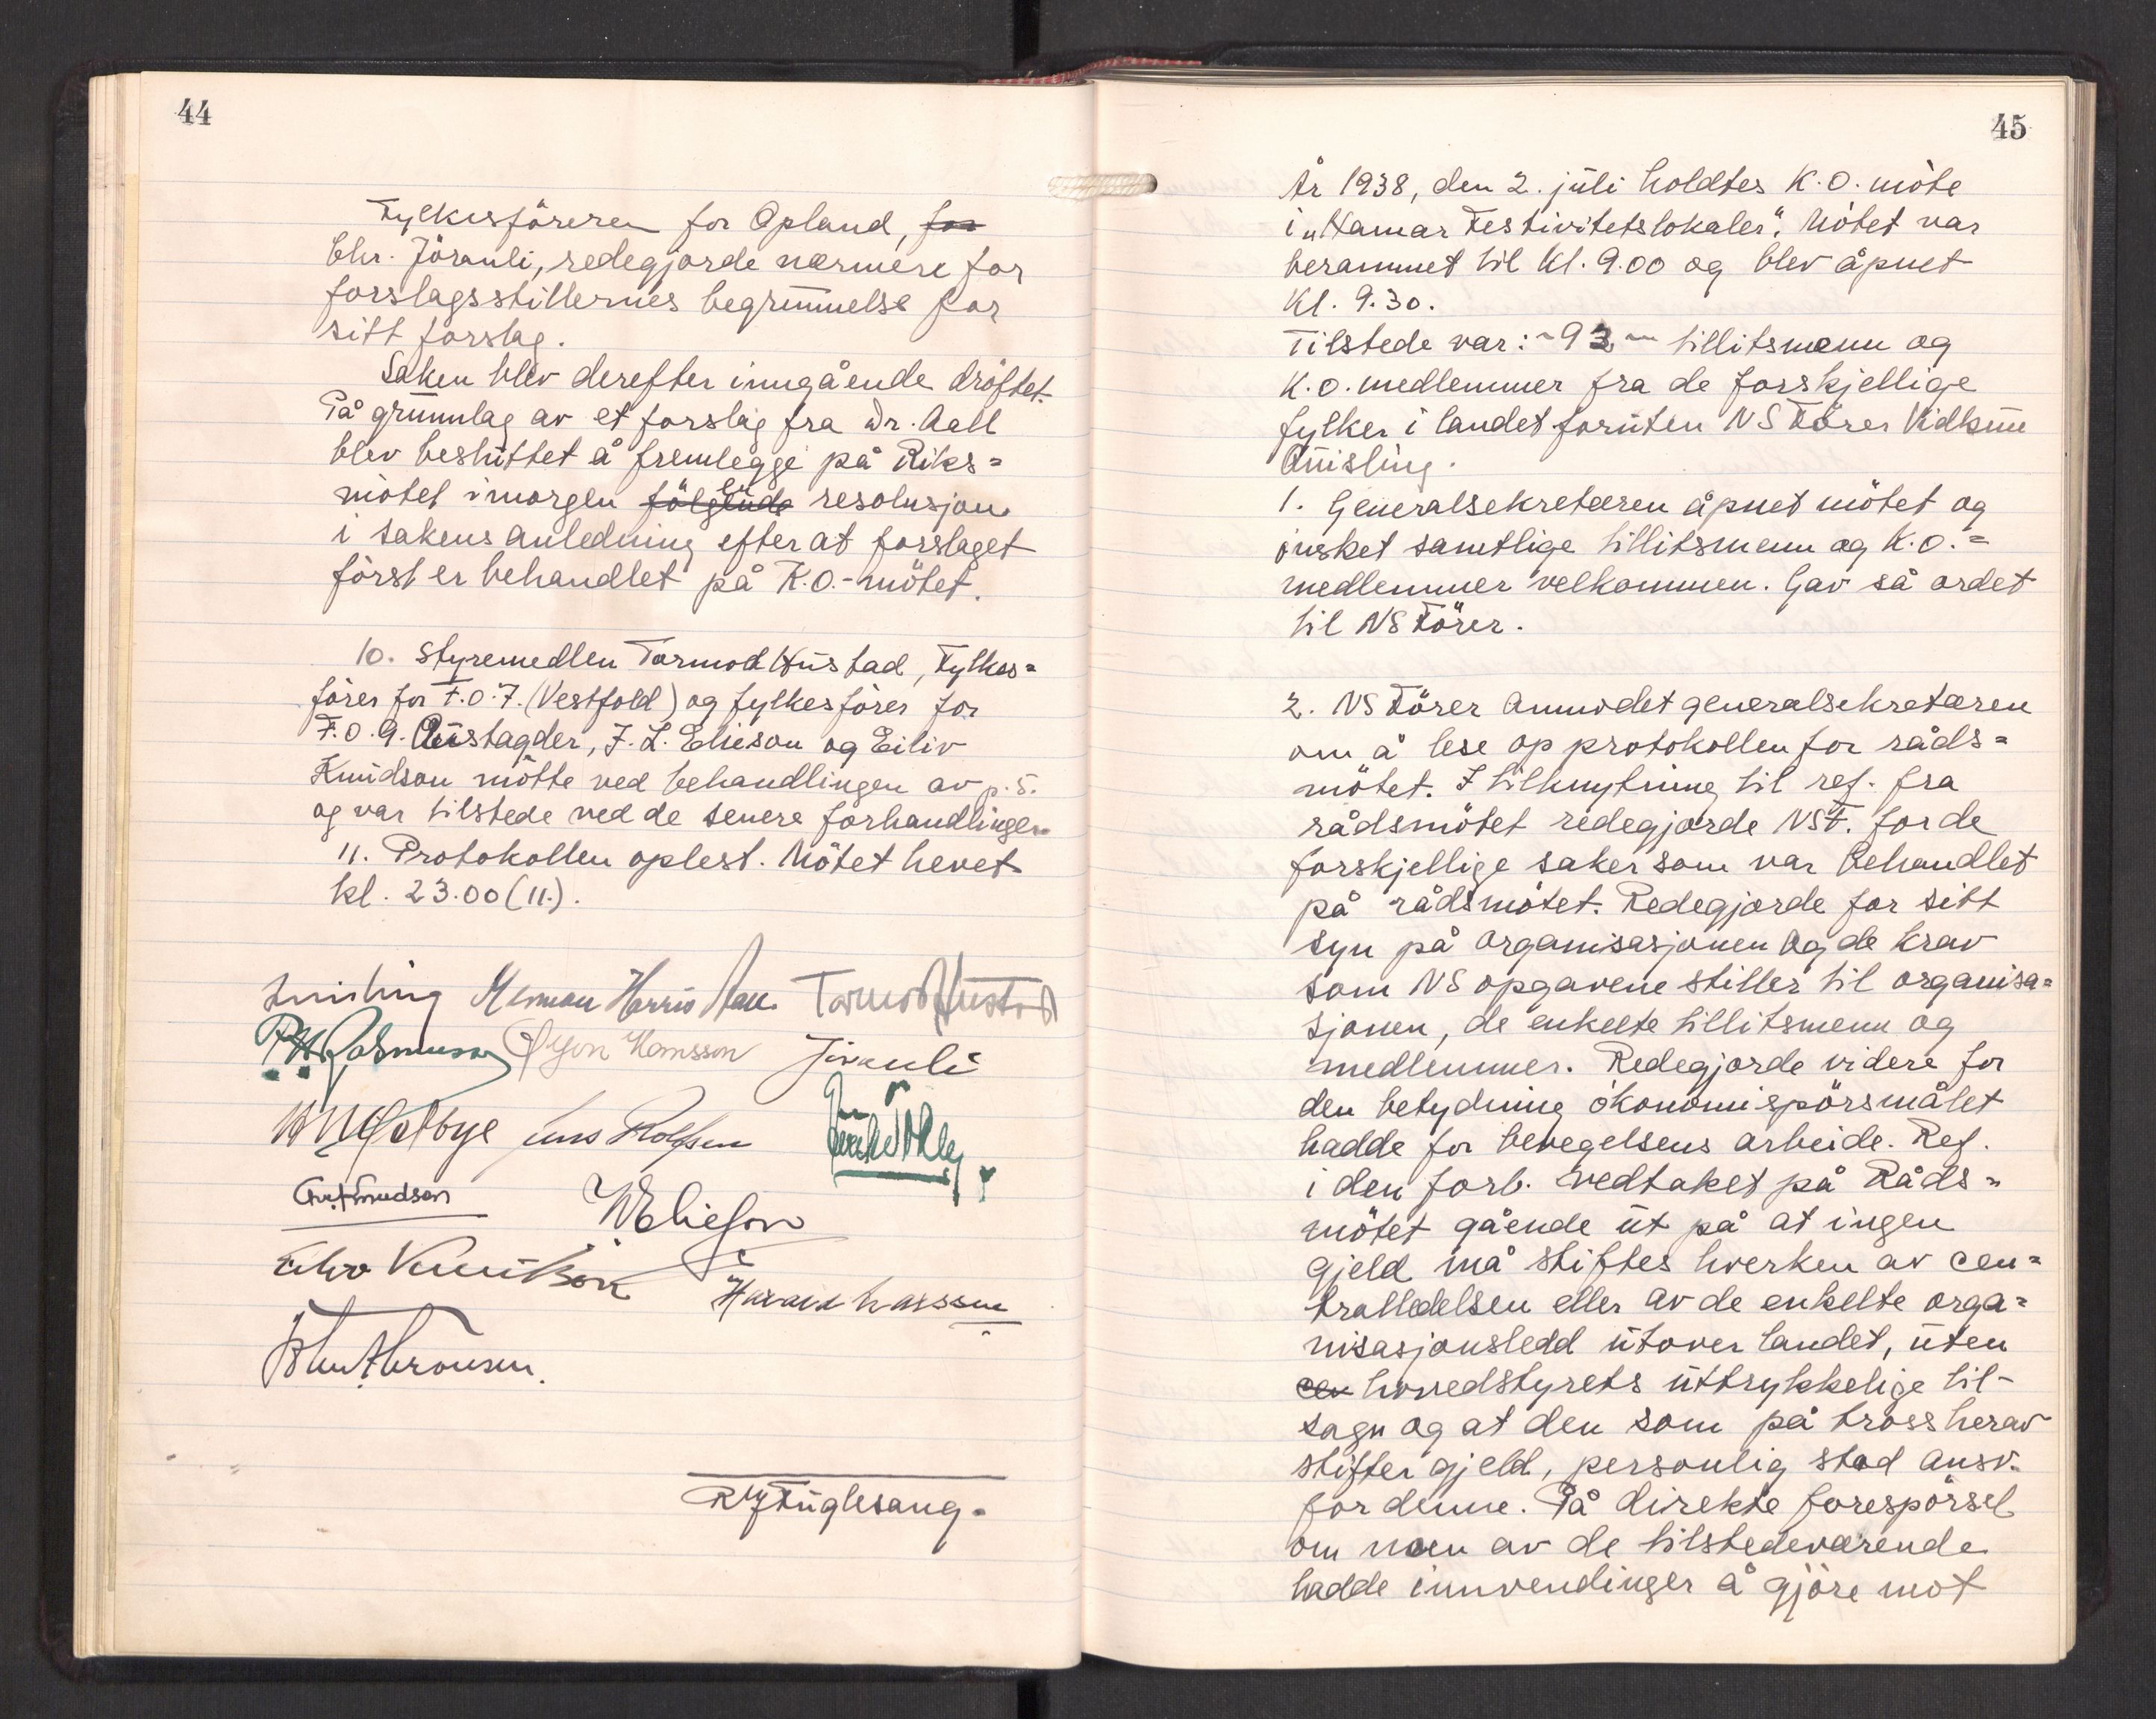 44
Fylkesföreren for Opland, for
Chr. Jöranli, redegjorde nærmere for
forslagsstillernes begrunnelse for
sitt forslag.
Saken blev derefter inngående dröftet.
På grunnlag av et forslag fra Dr. Aall
blev besluttet å fremlegge på Riks=
mötet imorgen fölgende en resolusjon
i sakens anledning efter at forslaget
först er behandlet på K.O.-mötet.
10. Styremedlem Tormod Hustad, Fylkes=
förer for F.O.7. (Vestfold) og fylkesförer for
F.O.9. Austagder, J. L. Elieson og Eiliv
Knudson mötte ved behandlingen av p.5.
og var tilstede ved de senere forhandlinger.
11. Protokollen oplest. Mötet hevet
kl. 23.00 (11.).
Quisling Herman Harris Aall Tormod Hustad
Ørjan Hansson Jöranli
Jens Rolfsen
Knudson
Elieson
Eiliv Knudson
Harald
R J Fuglesang.
45
År 1938, den 2. juli holdtes K.O. möte
i "Hamar Festivitetslokaler". Mötet var
berammet til kl. 9.00 og blev åpnet
kl. 9.30.
Tilstede var: ~93~ tillitsmenn og
K.O. medlemmer fra de forskjellige
fylker i landet foruten NS Förer Vidkun
Quisling.
1. Generalsekretæren åpnet mötet og
önsket samtlige tillitsmenn og K.O.=
medlemmer velkommen. Gav så ordet
til NS Förer.
2. NS Förer anmodet generalsekretæren
om å lese op protokollen for råds=
mötet. I tilknytning til ref. fra
rådsmötet redegjorde NSF. for de
forskjellige saker som var behandlet
på rådsmötet. Redegjorde for sitt
syn på organisasjonen og de krav
som NS opgavene stiller til organisa=
sjonen, de enkelte tillitsmenn og
medlemmer. Redegjorde videre for
den betydning ökonomispörsmålet
hadde for bevegelsens arbeide. Ref.
i den forb. vedtaket på Råds=
mötet gående ut på at ingen
gjeld må stiftes hverken av cen=
tralledelsen eller av de enkelte orga=
nisasjonsledd utover landet, uten
cen hovedstyrets uttrykkelige til-
sagn og at den som på tross herav
stifter gjeld, personlig stod ansv.
for denne. På direkte forespörsel
om noen av de tilstedeværende
hadde innvendinger å gjöre mot